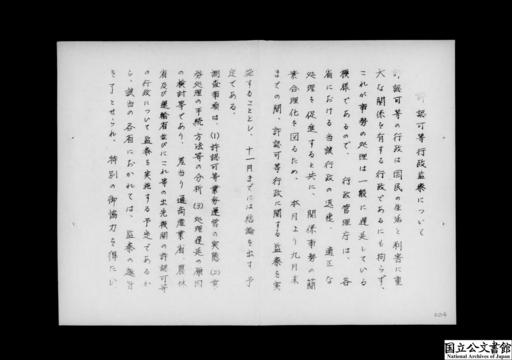 許認可等行政監察について
許、認可等の行政は国民の生活と利害に重
大な関係を有する行政であるにも拘らず、
これが事務の処理は一般に遅延している
模様であるので、行政管理庁は、各
省における当該行政の迅速、適正な
処理を促進すると共に、関係事務の簡
素合理化を図るため、本月より九月末
までの間、許認可等行政に関する監察を実
施することとし、十一月までには結論を出す予
定である。
調査事項は、(1)許認可等業務運営の実態(2)事
務処理の手続、方法等の分析(3)処理遅延の原因
の検討等であり、差当り通商産業省、農林
省及び運輸省並びにこれ等の出先機関の許認可等
の行政について監察を実施する予定であるか
ら、該当の各省におかれては、監察の趣旨
を了とせられ、特別の御協力を得たい。
国立公文書館
National Archives of Japan